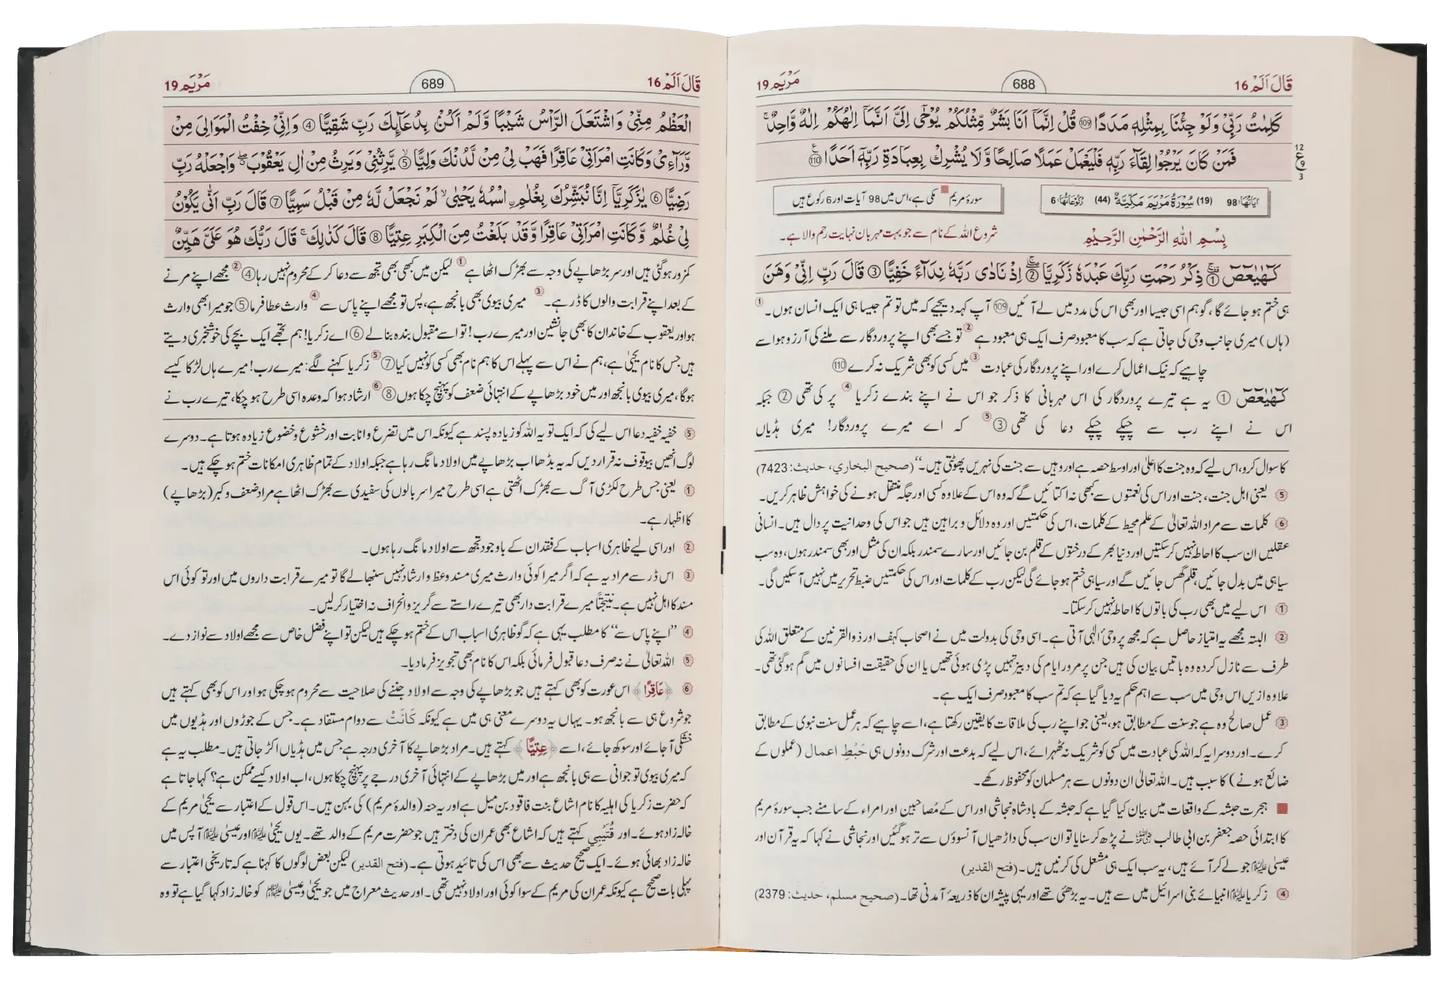 قَالَ اَلَمْ 16
688
مَرْيَم 19
كَلِمٰتُ رَبِّيْ وَلَوْ جِئْنَا بِمِثْلِهٖ مَدَدًا ⑩⑨ قُلْ اِنَّمَآ اَنَا بَشَرٌ مِّثْلُكُمْ يُوْحٰٓى اِلَيَّ اَنَّمَآ اِلٰهُكُمْ اِلٰهٌ وَّاحِدٌ ۚ
فَمَنْ كَانَ يَرْجُوْا لِقَآءَ رَبِّهٖ فَلْيَعْمَلْ عَمَلًا صَالِحًا وَّلَا يُشْرِكْ بِعِبَادَةِ رَبِّهٖٓ اَحَدًا ⑪⓪
12 ع 9 3
اٰيَاتُهَا: 98 (19) سُوْرَةُ مَرْيَمَ مَكِّيَّةٌ (44) رُكُوْعَاتُهَا: 6
سورۂ مریم مکی ہے، اس میں 98 آیات اور 6 رکوع ہیں
بِسْمِ اللهِ الرَّحْمٰنِ الرَّحِيْمِ
شروع اللہ کے نام سے جو بہت مہربان نہایت رحم والا ہے۔
كٓهٰيٰعٓصٓ ① ذِكْرُ رَحْمَتِ رَبِّكَ عَبْدَهٗ زَكَرِيَّا ② اِذْ نَادٰى رَبَّهٗ نِدَآءً خَفِيًّا ③ قَالَ رَبِّ اِنِّيْ وَهَنَ
ہی ختم ہو جائے گا، گو ہم اسی جیسا اور بھی اس کی مدد میں لے آئیں ⑩⑨ آپ کہہ دیجیے کہ میں تو تم جیسا ہی ایک انسان ہوں۔ ①
(ہاں) میری جانب وحی کی جاتی ہے کہ سب کا معبود صرف ایک ہی معبود ہے ② تو جسے بھی اپنے پروردگار سے ملنے کی آرزو ہو اسے
چاہیے کہ نیک اعمال کرے اور اپنے پروردگار کی عبادت ③ میں کسی کو بھی شریک نہ کرے ⑪⓪
كٓهٰيٰعٓصٓ ① یہ ہے تیرے پروردگار کی اس مہربانی کا ذکر جو اس نے اپنے بندے زکریا ④ پر کی تھی ② جبکہ
اس نے اپنے رب سے چپکے چپکے دعا کی تھی ③ ⑤ کہ اے میرے پروردگار! میری ہڈیاں
کا سوال کرو، اس لیے کہ وہ جنت کا اعلیٰ اور اوسط حصہ ہے اور وہیں سے جنت کی نہریں پھوٹتی ہیں۔“ (صحيح البخاري، حديث: 7423)
⑤ یعنی اہل جنت، جنت اور اس کی نعمتوں سے کبھی نہ اکتائیں گے کہ وہ اس کے علاوہ کسی اور جگہ منتقل ہونے کی خواہش ظاہر کریں۔
⑥ کلمات سے مراد اللہ تعالیٰ کے علم محیط کے کلمات، اس کی حکمتیں اور وہ دلائل و براہین ہیں جو اس کی وحدانیت پر دال ہیں۔ انسانی
عقلیں ان سب کا احاطہ نہیں کر سکتیں اور دنیا بھر کے درختوں کے قلم بن جائیں اور سارے سمندر بلکہ ان کی مثل اور بھی سمندر ہوں، وہ سب
سیاہی میں بدل جائیں، قلم گھس جائیں گے اور سیاہی ختم ہو جائے گی لیکن رب کے کلمات اور اس کی حکمتیں ضبط تحریر میں نہیں آ سکیں گی۔
① اس لیے میں بھی رب کی باتوں کا احاطہ نہیں کر سکتا۔
② البتہ مجھے یہ امتیاز حاصل ہے کہ مجھ پر وحیٔ الٰہی آتی ہے۔ اسی وحی کی بدولت میں نے اصحاب کہف اور ذوالقرنین کے متعلق اللہ کی
طرف سے نازل کردہ وہ باتیں بیان کی ہیں جن پر مرور ایام کی دبیز تہیں پڑی ہوئی تھیں یا ان کی حقیقت افسانوں میں گم ہو گئی تھی۔
علاوہ ازیں اس وحی میں سب سے اہم حکم یہ دیا گیا ہے کہ تم سب کا معبود صرف ایک ہے۔
③ عمل صالح وہ ہے جو سنت کے مطابق ہو، یعنی جو اپنے رب کی ملاقات کا یقین رکھتا ہے، اسے چاہیے کہ ہر عمل سنت نبوی کے مطابق
کرے۔ اور دوسرا یہ کہ اللہ کی عبادت میں کسی کو شریک نہ ٹھہرائے، اس لیے کہ بدعت اور شرک دونوں ہی حَبْطِ اعمال (عملوں کے
ضائع ہونے) کا سبب ہیں۔ اللہ تعالیٰ ان دونوں سے ہر مسلمان کو محفوظ رکھے۔
ہجرت حبشہ کے واقعات میں بیان کیا گیا ہے کہ حبشہ کے بادشاہ نجاشی اور اس کے مُصاحبین اور امراء کے سامنے جب سورۂ مریم
کا ابتدائی حصہ جعفر بن ابی طالب نے پڑھ کر سنایا تو ان سب کی داڑھیاں آنسوؤں سے تر ہو گئیں اور نجاشی نے کہا کہ یہ قرآن اور
عیسیٰ جو لے کر آئے ہیں، یہ سب ایک ہی مشعل کی کرنیں ہیں۔ (فتح القدير)
④ زکریا انبیائے بنی اسرائیل میں سے ہیں۔ یہ بڑھئی تھے اور یہی پیشہ ان کا ذریعۂ آمدنی تھا۔ (صحيح مسلم، حديث: 2379)
قَالَ اَلَمْ 16
689
مَرْيَم 19
الْعَظْمُ مِنِّيْ وَاشْتَعَلَ الرَّاْسُ شَيْبًا وَّلَمْ اَكُنْۢ بِدُعَآئِكَ رَبِّ شَقِيًّا ④ وَاِنِّيْ خِفْتُ الْمَوَالِيَ مِنْ
وَّرَآءِيْ وَكَانَتِ امْرَاَتِيْ عَاقِرًا فَهَبْ لِيْ مِنْ لَّدُنْكَ وَلِيًّا ⑤ يَّرِثُنِيْ وَيَرِثُ مِنْ اٰلِ يَعْقُوْبَ ۖ وَاجْعَلْهُ رَبِّ
رَضِيًّا ⑥ يٰزَكَرِيَّآ اِنَّا نُبَشِّرُكَ بِغُلٰمِ ۨاسْمُهٗ يَحْيٰى ۙ لَمْ نَجْعَلْ لَّهٗ مِنْ قَبْلُ سَمِيًّا ⑦ قَالَ رَبِّ اَنّٰى يَكُوْنُ
لِيْ غُلٰمٌ وَّكَانَتِ امْرَاَتِيْ عَاقِرًا وَّقَدْ بَلَغْتُ مِنَ الْكِبَرِ عِتِيًّا ⑧ قَالَ كَذٰلِكَ ۚ قَالَ رَبُّكَ هُوَ عَلَيَّ هَيِّنٌ
کمزور ہو گئی ہیں اور سر بڑھاپے کی وجہ سے بھڑک اٹھا ہے ① لیکن میں کبھی بھی تجھ سے دعا کر کے محروم نہیں رہا ④ ② مجھے اپنے مرنے
کے بعد اپنے قرابت والوں کا ڈر ہے۔ ③ میری بیوی بھی بانجھ ہے، پس تو مجھے اپنے پاس سے ④ وارث عطا فرما ⑤ جو میرا بھی وارث
ہو اور یعقوب کے خاندان کا بھی جانشین اور میرے رب! تو اسے مقبول بندہ بنا لے ⑥ اے زکریا! ہم تجھے ایک بچے کی خوشخبری دیتے
ہیں جس کا نام یحییٰ ہے، ہم نے اس سے پہلے اس کا ہم نام بھی کسی کو نہیں کیا ⑦ ⑤ زکریا کہنے لگے: میرے رب! میرے ہاں لڑکا کیسے
ہو گا، میری بیوی بانجھ اور میں خود بڑھاپے کے انتہائی ضعف کو پہنچ چکا ہوں ⑧ ⑥ ارشاد ہوا کہ وعدہ اسی طرح ہو چکا، تیرے رب نے
⑤ خفیہ خفیہ دعا اس لیے کی کہ ایک تو یہ اللہ کو زیادہ پسند ہے کیونکہ اس میں تضرع و انابت اور خشوع و خضوع زیادہ ہوتا ہے۔ دوسرے
لوگ انھیں بیوقوف نہ قرار دیں کہ یہ بڈھا اب بڑھاپے میں اولاد مانگ رہا ہے جبکہ اولاد کے تمام ظاہری امکانات ختم ہو چکے ہیں۔
① یعنی جس طرح لکڑی آگ سے بھڑک اٹھتی ہے اسی طرح میرا سر بالوں کی سفیدی سے بھڑک اٹھا ہے مراد ضعف و کبر (بڑھاپے)
کا اظہار ہے۔
② اور اسی لیے ظاہری اسباب کے فقدان کے باوجود تجھ سے اولاد مانگ رہا ہوں۔
③ اس ڈر سے مراد یہ ہے کہ اگر میرا کوئی وارث میری مسند وعظ و ارشاد نہیں سنبھالے گا تو میرے قرابت داروں میں اور تو کوئی اس
مسند کا اہل نہیں ہے۔ نتیجتاً میرے قرابت دار بھی تیرے راستے سے گریز و انحراف نہ اختیار کر لیں۔
④ ”اپنے پاس سے“ کا مطلب یہی ہے کہ گو ظاہری اسباب اس کے ختم ہو چکے ہیں لیکن تو اپنے فضل خاص سے مجھے اولاد سے نواز دے۔
⑤ اللہ تعالیٰ نے نہ صرف دعا قبول فرمائی بلکہ اس کا نام بھی تجویز فرما دیا۔
⑥ ﴿عَاقِرًا﴾ اس عورت کو بھی کہتے ہیں جو بڑھاپے کی وجہ سے اولاد جننے کی صلاحیت سے محروم ہو چکی ہو اور اس کو بھی کہتے ہیں
جو شروع ہی سے بانجھ ہو۔ یہاں یہ دوسرے معنی ہی میں ہے کیونکہ كَانَتْ سے دوام مستفاد ہے۔ جس کے جوڑوں اور ہڈیوں میں
خشکی آ جائے اور سوکھ جائے، اسے ﴿عِتِيًّا﴾ کہتے ہیں۔ مراد بڑھاپے کا آخری درجہ ہے جس میں ہڈیاں اکڑ جاتی ہیں۔ مطلب یہ ہے
کہ میری بیوی تو جوانی سے ہی بانجھ ہے اور میں بڑھاپے کے انتہائی آخری درجے پر پہنچ چکا ہوں، اب اولاد کیسے ممکن ہے؟ کہا جاتا ہے
کہ حضرت زکریا کی اہلیہ کا نام اشاع بنت فاقود بن میل ہے اور یہ حنہ (والدۂ مریم) کی بہن ہیں۔ اس قول کے اعتبار سے یحییٰ مریم کے
خالہ زاد ہوئے۔ اور قُتَیبی کہتے ہیں کہ اشاع بھی عمران کی دختر ہیں جو حضرت مریم کے والد تھے۔ یوں یحییٰ اور عیسیٰ آپس میں
خالہ زاد بھائی ہوئے۔ ایک صحیح حدیث سے بھی اس کی تائید ہوتی ہے۔ (فتح القدير) لیکن بعض لوگوں کا کہنا ہے کہ تاریخی اعتبار سے
پہلی بات صحیح ہے کیونکہ عمران کی مریم کے سوا کوئی اور اولاد نہیں تھی۔ اور حدیث معراج میں جو یحییٰ و عیسیٰ کو خالہ زاد کہا گیا ہے تو وہ